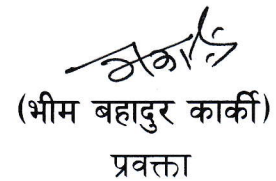 (भीम बहादुर कार्की)
प्रवक्ता